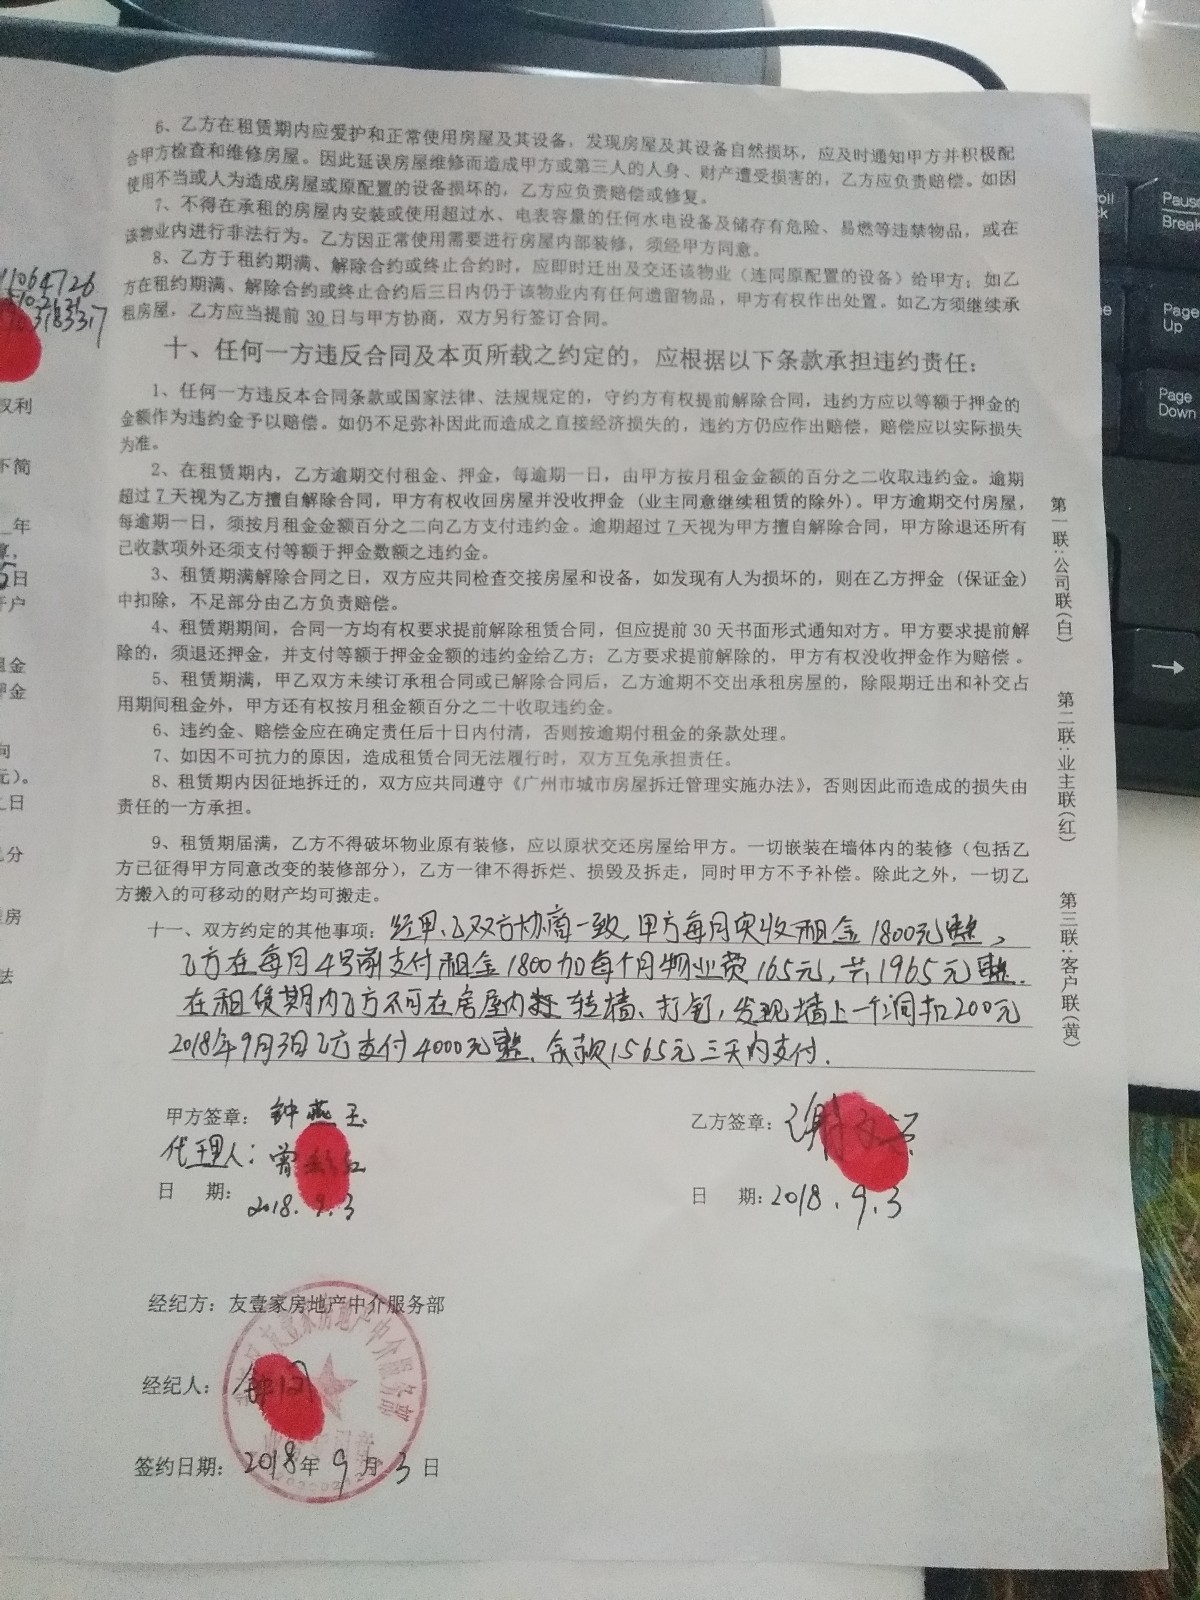 6、乙方在租赁期内应爱护和正常使用房屋及其设备，发现房屋及其设备自然损坏，应及时通知甲方并积极配
合甲方检查和维修房屋。因此延误房屋维修而造成甲方或第三人的人身、财产遭受损害的，乙方应负责赔偿。如因
使用不当或人为造成房屋或原配置的设备损坏的，乙方应负责赔偿或修复。
7、不得在承租的房屋内安装或使用超过水、电表容量的任何水电设备及储存有危险、易燃等违禁物品，或在
该物业内进行非法行为。乙方因正常使用需要进行房屋内部装修，须经甲方同意。
8、乙方于租约期满、解除合约或终止合约时，应即时迁出及交还该物业（连同原配置的设备）给甲方；如乙
方在租约期满、解除合约或终止合约后三日内仍于该物业内有任何遗留物品，甲方有权作出处置。如乙方须继续承
租房屋，乙方应当提前30日与甲方协商，双方另行签订合同。
十、任何一方违反合同及本页所载之约定的，应根据以下条款承担违约责任：
1、任何一方违反本合同条款或国家法律、法规规定的，守约方有权提前解除合同，违约方应以等额于押金的
金额作为违约金予以赔偿。如仍不足弥补因此而造成之直接经济损失的，违约方仍应作出赔偿，赔偿应以实际损失
为准。
2、在租赁期内，乙方逾期交付租金、押金，每逾期一日，由甲方按月租金金额的百分之二收取违约金。逾期
超过7天视为乙方擅自解除合同，甲方有权收回房屋并没收押金（业主同意继续租赁的除外）。甲方逾期交付房屋，
每逾期一日，须按月租金金额百分之二向乙方支付违约金。逾期超过7天视为甲方擅自解除合同，甲方除退还所有
己收款项外还须支付等额于押金数额之违约金。
3、租赁期满解除合同之日，双方应共同检查交接房屋和设备，如发现有人为损坏的，则在乙方押金（保证金）
中扣除，不足部分由乙方负责赔偿。
4、租赁期期间，合同一方均有权要求提前解除租赁合同，但应提前30天书面形式通知对方。甲方要求提前解
除的，须退还押金，并支付等额于押金金额的违约金给乙方；乙方要求提前解除的，甲方有权没收押金作为赔偿。
5、租赁期满，甲乙双方未续订承租合同或已解除合同后，乙方逾期不交出承租房屋的，除限期迁出和补交占
用期间租金外，甲方还有权按月租金额百分之二十收取违约金。
6、违约金、赔偿金应在确定责任后十日内付清，否则按逾期付租金的条款处理。
7、如因不可抗力的原因，造成租赁合同无法履行时，双方互免承担责任。
8、租赁期内因征地拆迁的，双方应共同遵守《广州市城市房屋拆迁管理实施办法》，否则因此而造成的损失由
责任的一方承担。
9、租赁期届满，乙方不得破坏物业原有装修，应以原状交还房屋给甲方。一切嵌装在墙体内的装修（包括乙
方已征得甲方同意改变的装修部分），乙方一律不得拆烂、损毁及拆走，同时甲方不予补偿。除此之外，一切乙
方搬入的可移动的财产均可搬走。
十一、双方约定的其他事项：经甲、乙双方协商一致，甲方每月实收租金1800元整、
乙方在每月4号前支付租金1800加每个月物业费165元，共1965元整.
在租赁期内乙方不可在房屋内 墙、打钉，发现墙上一个洞扣200元
2018年9月3日乙方支付4000元整、余款1565元三天内支付.
甲方签章：钟燕玉
代理人：曾 红
日 期：2018.9.3
乙方签章：谢文
日 期：2018.9.3
经纪方：友壹家房地产中介服务部
经纪人：
签约日期：2018年9月3日
友壹家房地产中介服务部
第一联：公司联（白）
第二联：业主联（红）
第三联：客户联（黄）
权利
不简
年
日
户
租金
押金
元）。
日
分
房
法
Pause
Break
Page
Up
Page
Down
→